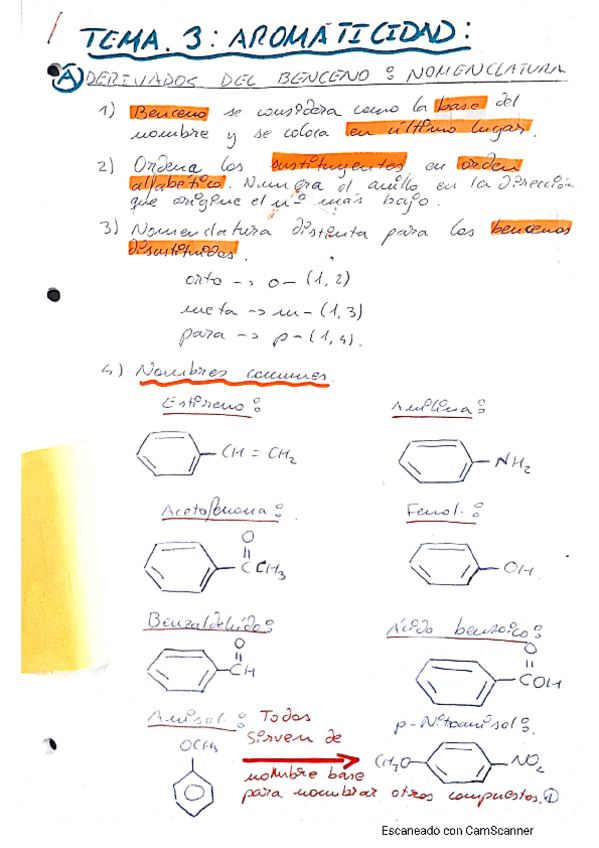 TEMA. 3: AROMATICIDAD:
A DERIVADOS DEL BENCENO: NOMENCLATURA
1) Benceno se considera como la base del
nombre y se coloca en último lugar.
2) Ordena los sustituyentes en orden
alfabético. Numera el anillo en la dirección
que origine el nº más bajo.
3) Nomenclatura distinta para los bencenos
disustituidos.
orto -> o- (1,2)
meta -> m- (1,3)
para -> p- (1,4).
4) Nombres comunes.
Estireno: Anilina:
CH = CH2 NH2
Acetofenona: Fenol:
O
CCH3 OH
Benzaldehído: Ácido benzoico:
O O
CH COH
Anisol: Todos p-Nitroanisol:
sirven de
OCH3 CH3O NO2
nombre base
para nombrar otros compuestos. 1
Escaneado con CamScanner